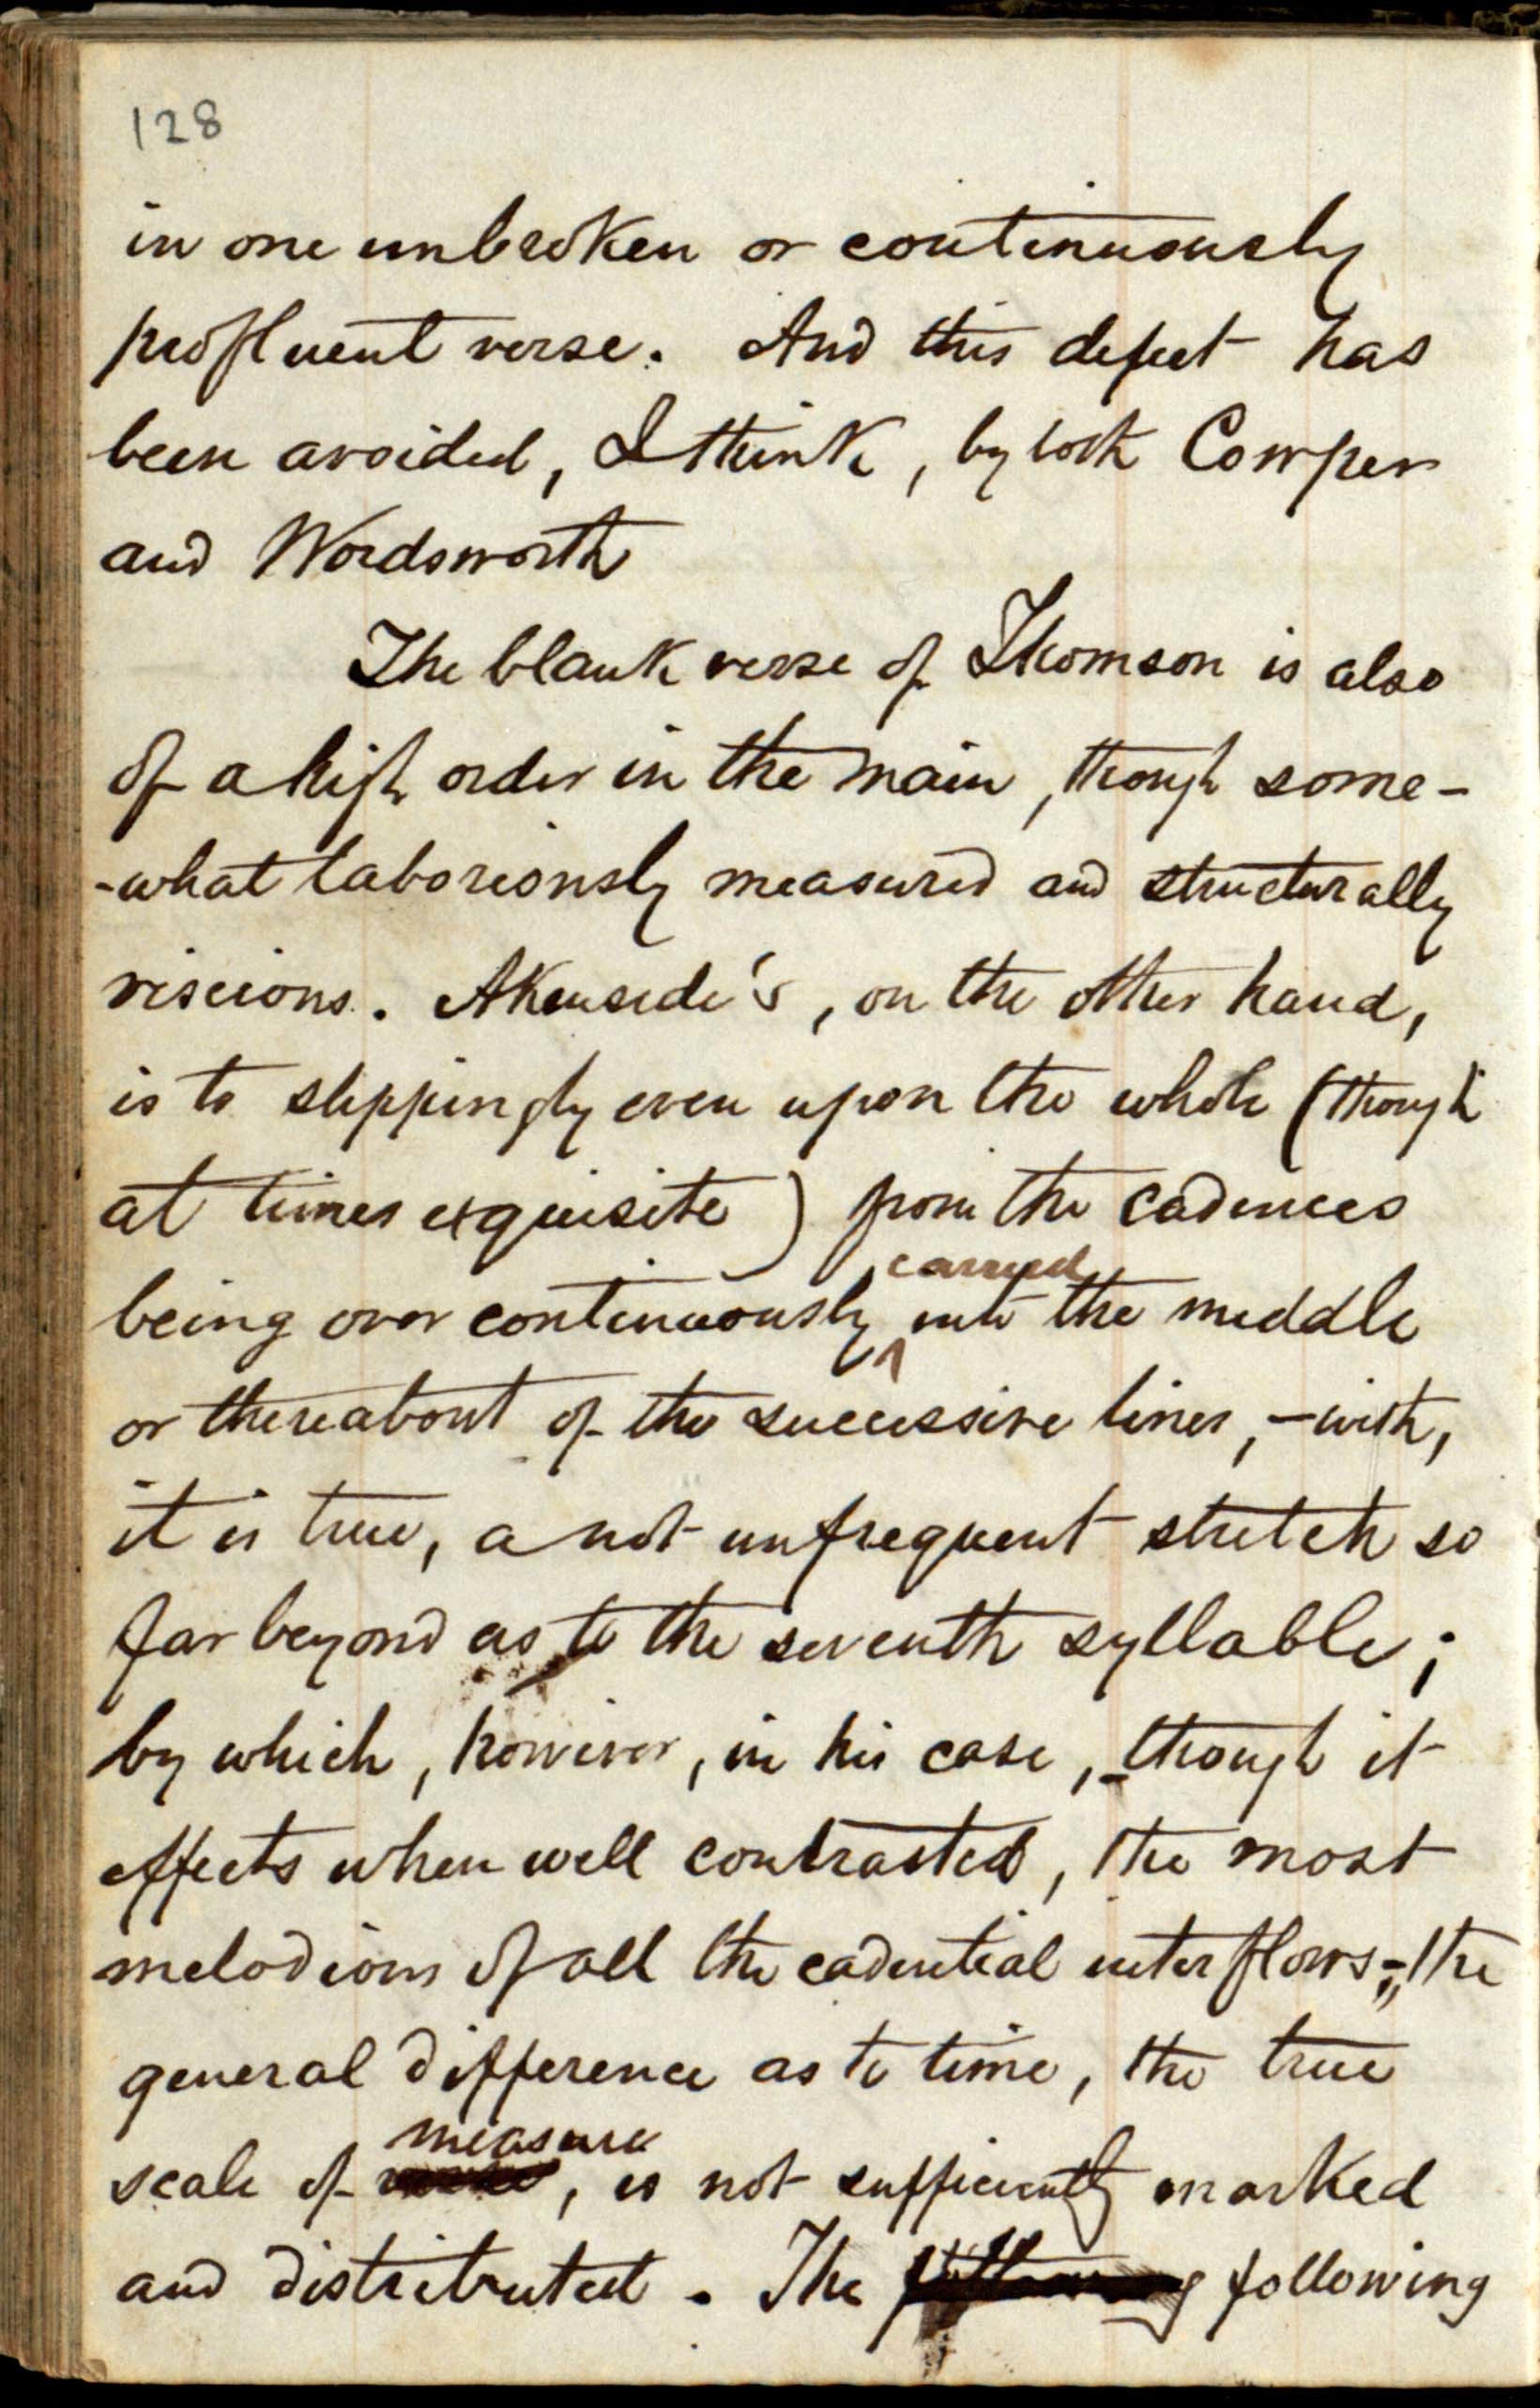 128
in one unbroken or continuously
profluent verse. And this defect has
been avoided, I think, by both Cowper
and Wordsworth
The blank verse of Thomson is also
of a high order in the main, though some-
-what laboriously measured and structurally
viscious. Akenside's, on the other hand,
is to slippingly even upon the whole (though
at times exquisite) from the cadences
being over continuously carryed into the middle
or thereabout of the successive lines, – with,
it is true, a not unfrequent stretch so
far beyond as to the seventh syllable;
by which, however, in his case, – though it
effects when well contrasted, the most
melodious of all the cadential interflows; – the
general difference as to time, the true
scale of measure, is not sufficiently marked
and distributed. The following following